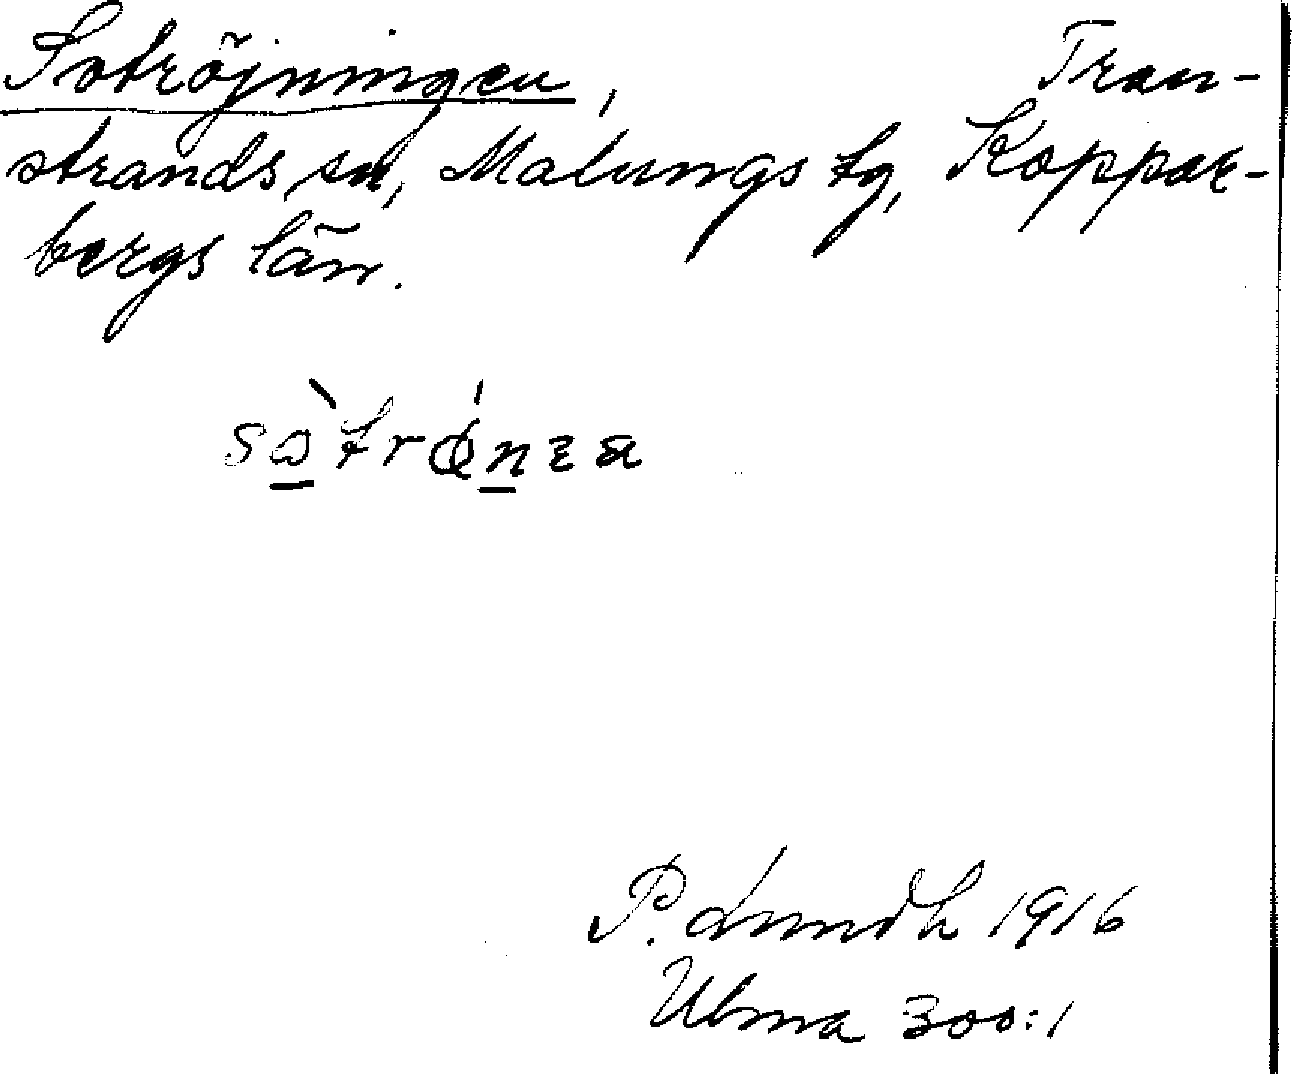 Sotröjningen, Tran-
strands sn, Malungs tg, Koppar-
bergs län.
P. Lundh 1916
Ulma 300:1